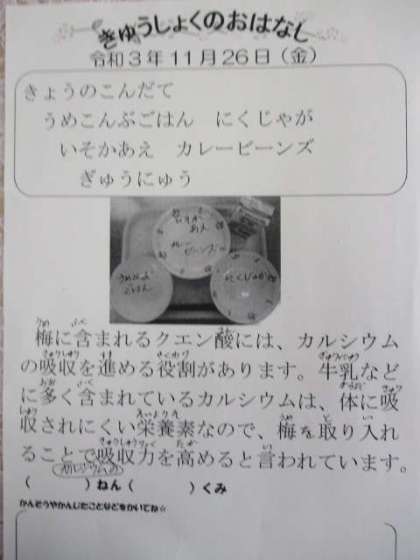 きゅうしょくのおはなし
令和3年11月26日(金)
きょうのこんだて
うめこんぶごはん にくじゃが
いそかあえ カレービーンズ
ぎゅうにゅう
いそか
あえ
カレー
ビーンズ
うめこんぶ
ごはん
にくじゃが
梅に含まれるクエン酸には、カルシウム
の吸収を進める役割があります。牛乳など
に多く含まれているカルシウムは、体に吸
収されにくい栄養素なので、梅を取り入れ
ることで吸収力を高めると言われています。
カルシウムの
( )ねん( )くみ
かんそうやかんじたことなどをかいてね☆